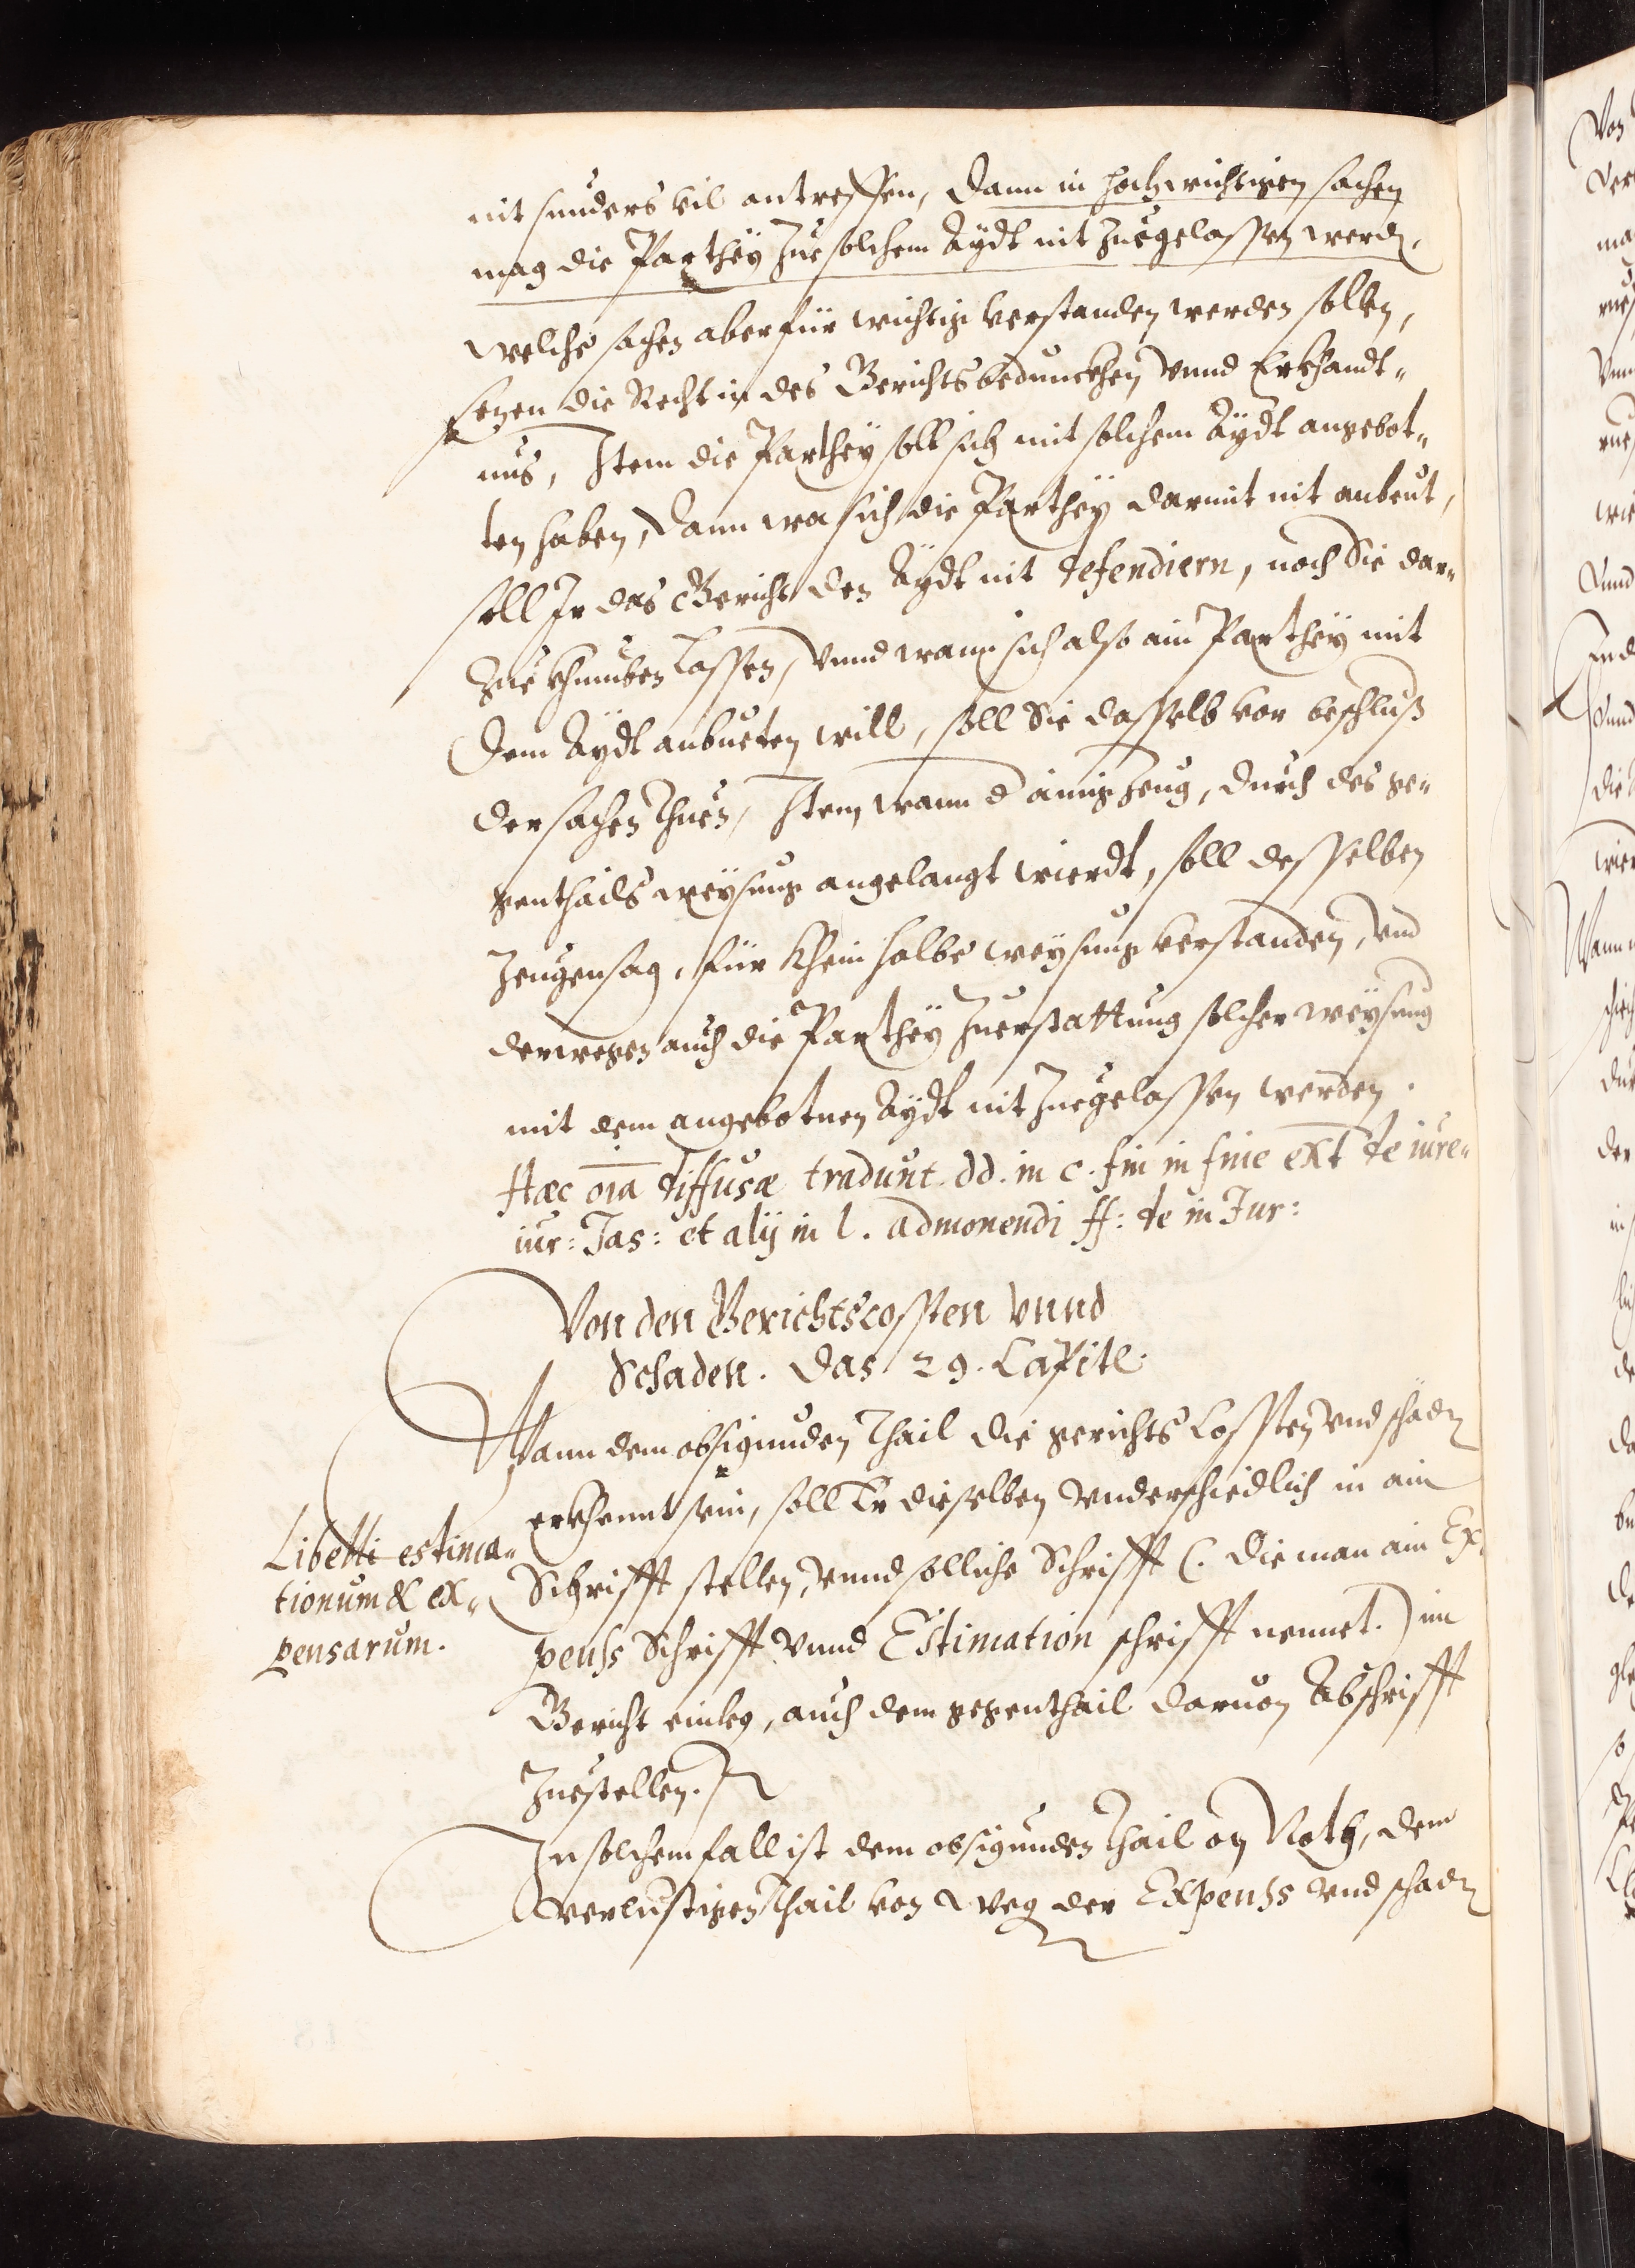 nit sunders vil antreffen, dann in hochwichtigen sachen
mag die Parthey zue solchem Aydt nit zuegelassen werdn,
welche sachen aber für wichtig verstanden werden sollen,
sezen die Recht in des Gerichts bedunckhen vnnd Erkhandt„
nus, Item die Parthey soll sich mit solchem Aydt angebot„
ten haben, dann wa sich die Parthey darmit nit anbeut,
soll Ir das Gericht den Aydt nit defendiern, noch Sie dar„
zue khumben lassen, vnnd wann sich also ain Parthey mit
dem Aydt anbueten will, soll Sie dasselb vor beschluß
der sachen thuen, Item wann d ainig zeug, durch des ge„
genthails weysung angelangt wierdt, soll desselben
zeugensag, für khein halbe weysung verstanden, vnd
derwegen auch die Parthey zuerstattung solcher weysung
mit dem angebotnen Aydt nit zuegelassen werden.
Hæc oīa diffusæ tradunt. dd. in c. fin in fine ext de iure„
iur: Jas: et alij in l. admonendi ff: de in Jur:
Von den Gerichtscossten vnnd
Schaden. Das 29. Capitl.
Wann dem obsigunden Thail die gerichts Cossten vnd schadn
erkhennt sein, soll Er dieselben vnderschiedlich in ain
Schrifft stellen, vnnd solliche Schrifft (. die man ain Ex„
penss Schrifft vnnd Estimation schrifft nennet.) im
Gericht einleg, auch dem gegenthail daruon Abschrifft
zuestellen.
In solchem fall ist dem obsigunden Thail on Noth, dem
verlustigen Thail von weg der Expenss vnd schadn
Libelli estima„
tionum & ex„
pensarum.